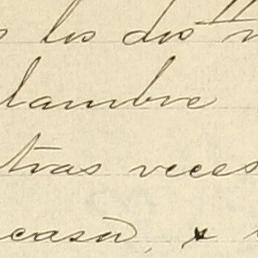 los dos
lambre
tras veces
casa,